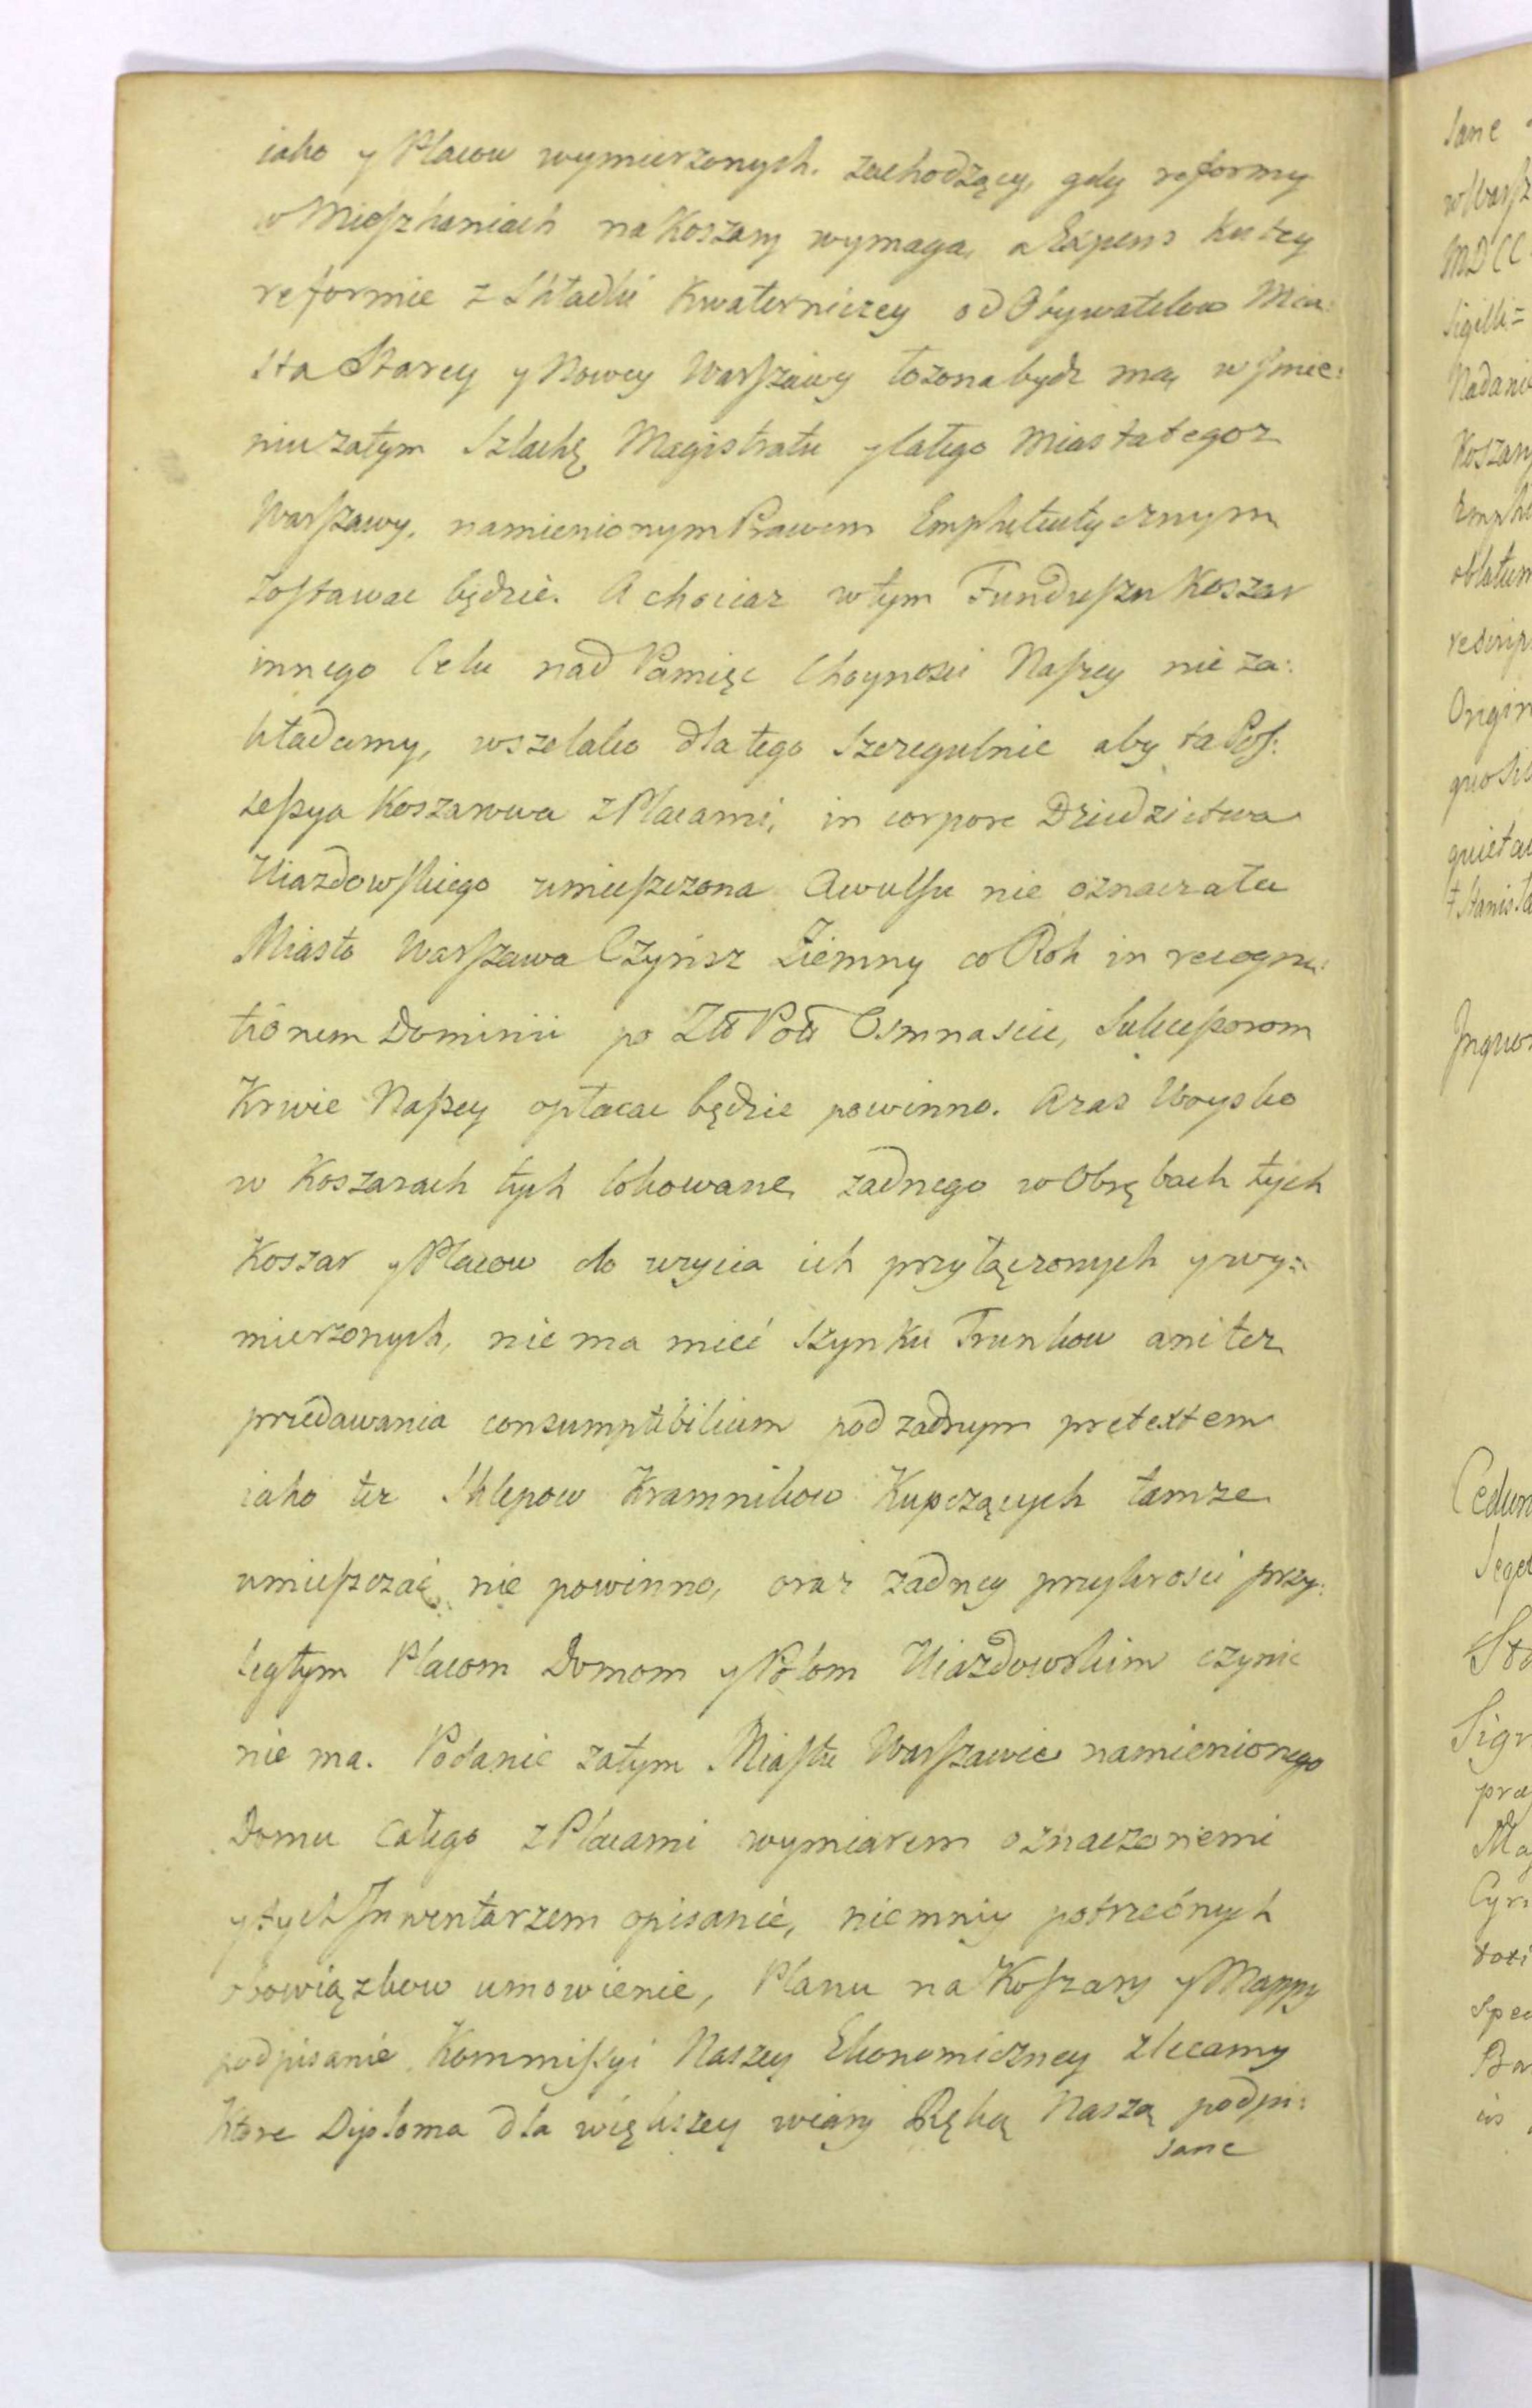 iako y Placow wymierzonych. zachodzący, gdy reformy
w Mieszkaniach na Koszary wymaga, a Expens ku tey
reformie z Składki Kwaterniczey od Obywatelow Mia:
sta Starey y Nowey Warszawy łozona bydz ma, w Jmie:
niu zatym Szlachę Magistratu y całego Miasta tegoz
Warszawy, namienionym Prawem Emphiteutycznym
zostawac będzie. A chociaz w tym Funduszu Koszar
innego Celu nad Pamięc Choynosci Naszey nie za:
kładamy, wszelako dla tego szczegulnie aby ta Pos:
sessya Koszarowa z Placami, in corpore Dziedzictwa
Uiazdowskiego umieszczona Awulsu nie oznaczała
Miasto Warszawa Czynsz Ziemny co Rok in recogni:
tionem Dominii po Złł Poll Osmnascie, Sukcessorom
Krwie Naszey opłacac będzie powinno. Azas Woysko
w Koszarach tych lokowane, zadnego w Obrębach tych
Koszar y Placow do uzycia ich przyłączonych y wy:
mierzonych, nie ma mieć Szynku Trunkow ani tez
przedawania consumptibilium pod zadnym pretextem
iako tez Sklepow Kramnikow Kupczących tamze
umieszczać nie powinno, oraz zadney przykrosci przy:
ległym Placom Domom y Polom Uiazdowskim czynic
nie ma. Podanie zatym Miastu Warszawie namienionego
Domu całego z Placami wymiarem oznaczonemi
y tych Jnwentarzem opisanie, niemniy potrzebnych
obowiązkow umowienie, Planu na Koszary y Mappy
podpisanie, Kommissyi Naszey Ekonomiczney zlecamy
Ktore Diploma dla większey wiary Ręką Naszą podpi:
sane
Sane
w Warsz
MDCC
Sigilli=
Nadani
Koszary
Emphi
oblatum
rescrip
Origin
quietav
Stanisła
Cedun
Sigr
prae
Ma
Cyr
spec